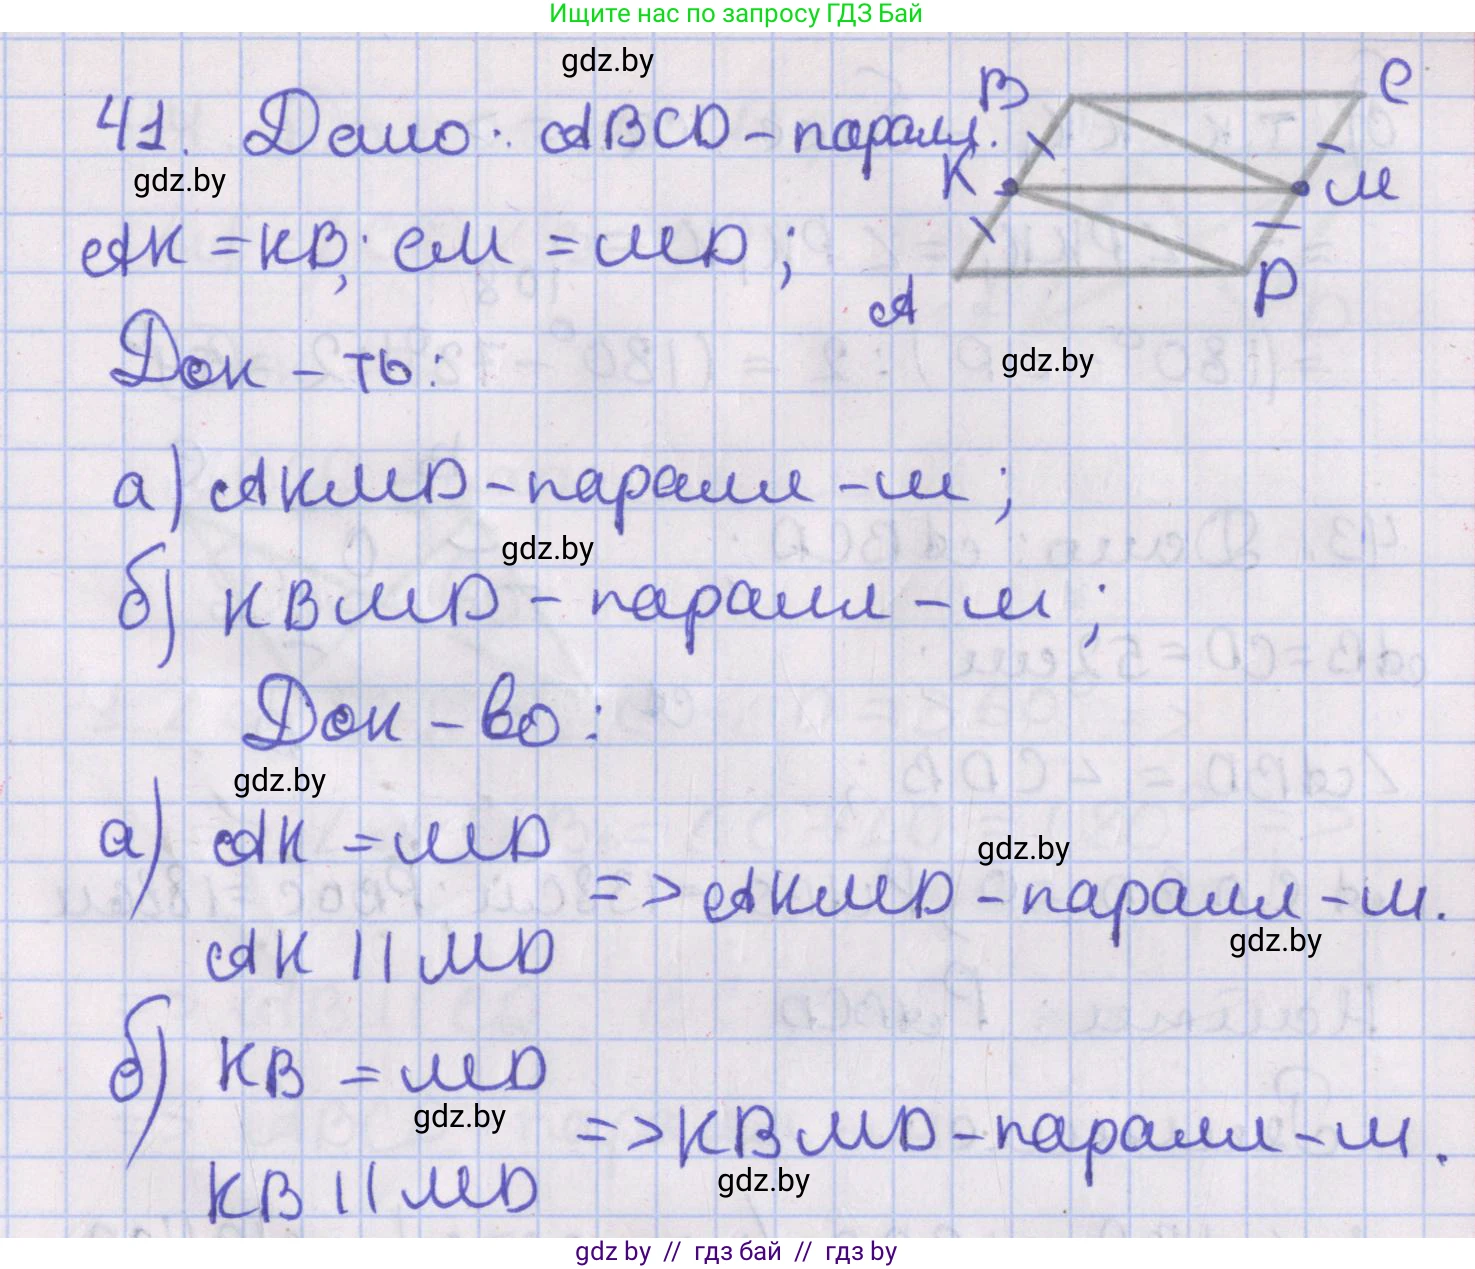 Ищите нас по запросу ГДЗ Бай
gdz.by
41. Дано: ABCD – паралл.
gdz.by
AK = KB; CM = MD;
B
C
K
M
A
D
gdz.by
Док – ть:
а) AKMD – паралл – м;
gdz.by
б) KBMD – паралл – м;
Док – во:
gdz.by
а) AK = MD
gdz.by
=> AKMD – паралл – м.
gdz.by
AK || MD
б) KB = MD
gdz.by
=> KBMD – паралл – м.
gdz.by
KB || MD
gdz by // гдз бай // гдз by